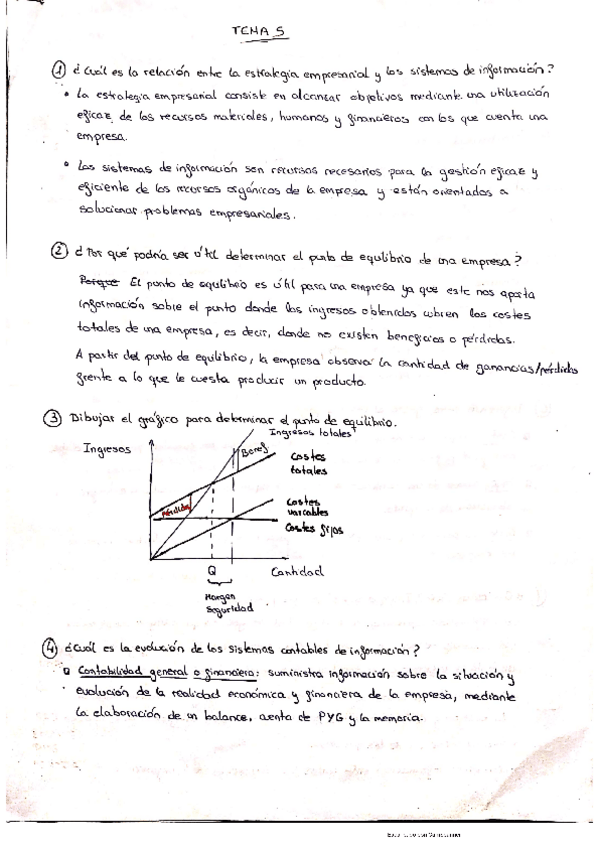 TEMA 5
① ¿Cuál es la relación entre la estrategia empresarial y los sistemas de información?
• La estrategia empresarial consiste en alcanzar objetivos mediante una utilización
eficaz de los recursos materiales, humanos y financieros con los que cuenta una
empresa.
• Los sistemas de información son recursos necesarios para la gestión eficaz y
eficiente de los recursos orgánicos de la empresa y están orientados a
solucionar problemas empresariales.
② ¿Por qué podría ser útil determinar el punto de equilibrio de una empresa?
Porque El punto de equilibrio es útil para una empresa ya que este nos aporta
información sobre el punto donde los ingresos obtenidos cubren los costes
totales de una empresa, es decir, donde no existen beneficios o pérdidas.
A partir del punto de equilibrio, la empresa observa la cantidad de ganancias/pérdidas
frente a lo que le cuesta producir un producto.
③ Dibujar el gráfico para determinar el punto de equilibrio.
Ingresos totales
Ingresos
Benef
costes
totales
pérdidas
costes
variables
Costes fijos
Q
Cantidad
Margen
Seguridad
④ ¿Cuál es la evolución de los sistemas contables de información?
Contabilidad general o financiera: suministra información sobre la situación y
evolución de la realidad económica y financiera de la empresa, mediante
la elaboración de un balance, cuenta de PYG y la memoria.